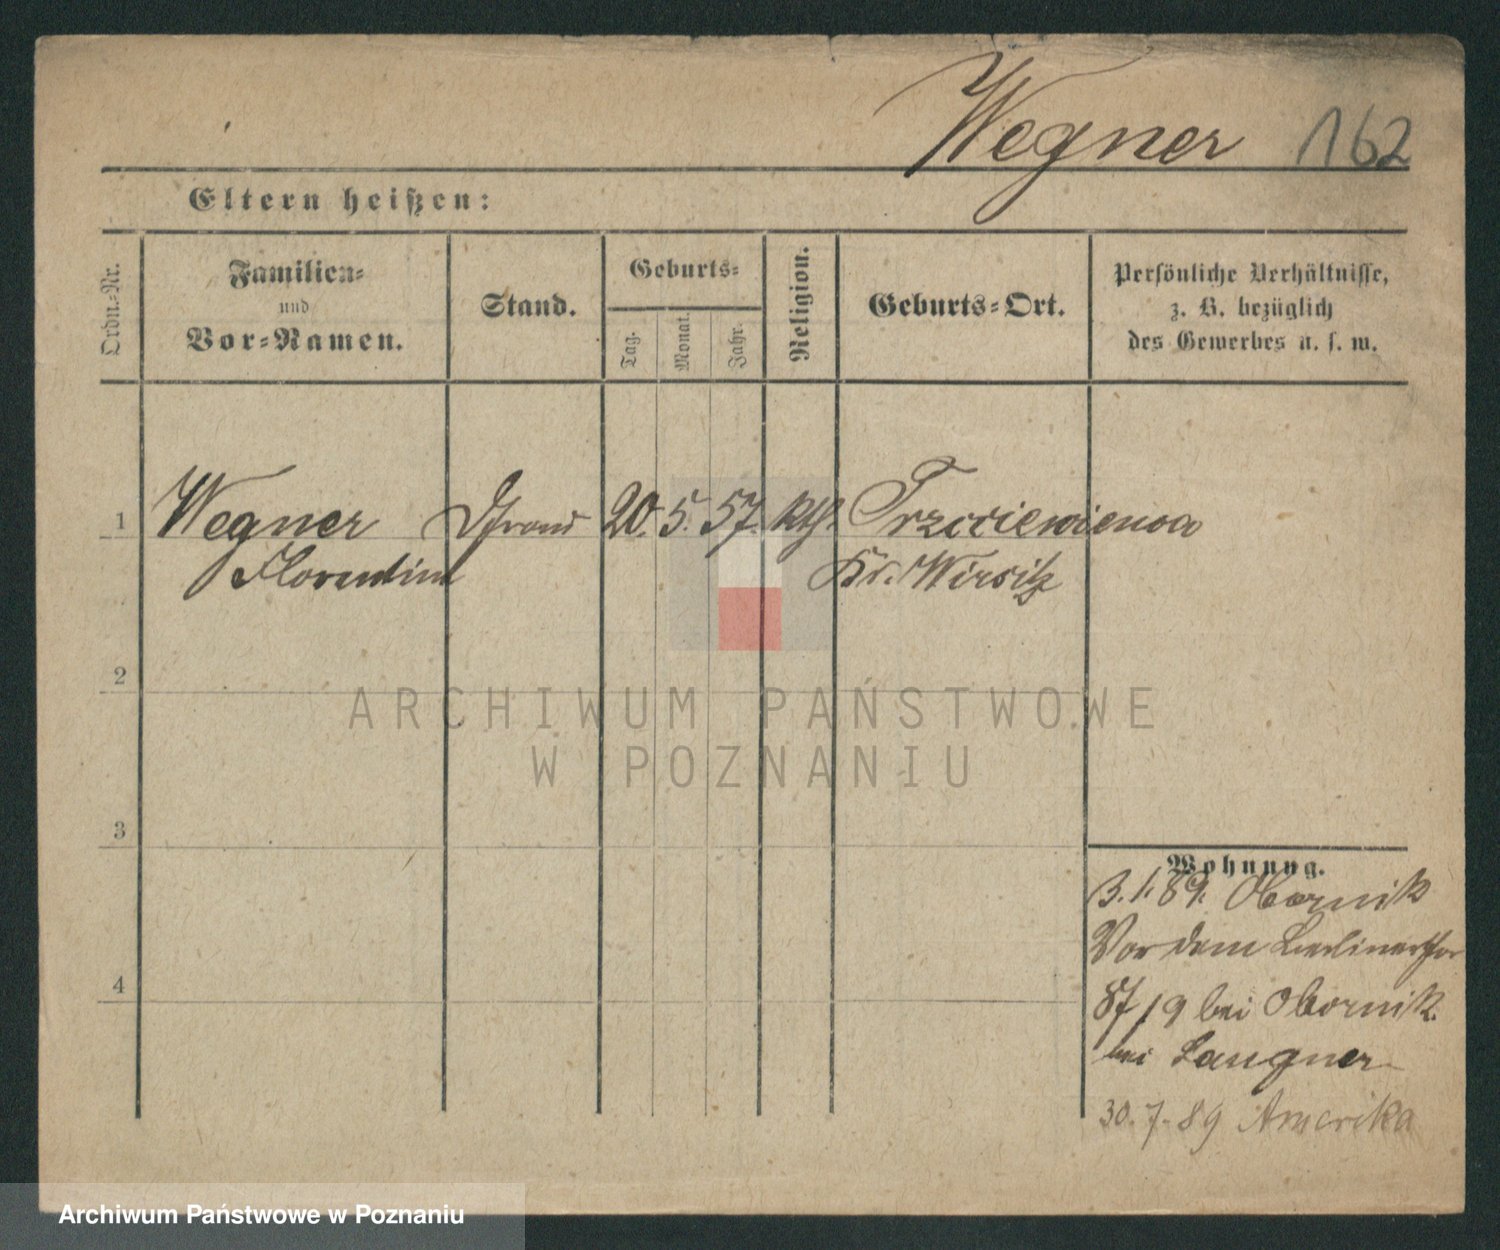 Wegner 162
Eltern heißen:
Ordn.-Nr.
Familien-
und
Vor-Namen.
Stand.
Geburts-
Tag.
Monat.
Jahr.
Religion.
Geburts-Ort.
Persönliche Verhältnisse,
z. B. bezüglich
des Gewerbes u. s. w.
1 Wegner 20. 5. 57. kth.
Florentine Kr. Wirsitz
2
ARCHIWUM PAŃSTWOWE
W POZNANIU
3
Wohnung.
3.1.89. Obornik
Vor dem Berlinerthor
4
87/9 bei Obornik.
bei Langner
30.7.89 Amerika
Archiwum Państwowe w Poznaniu